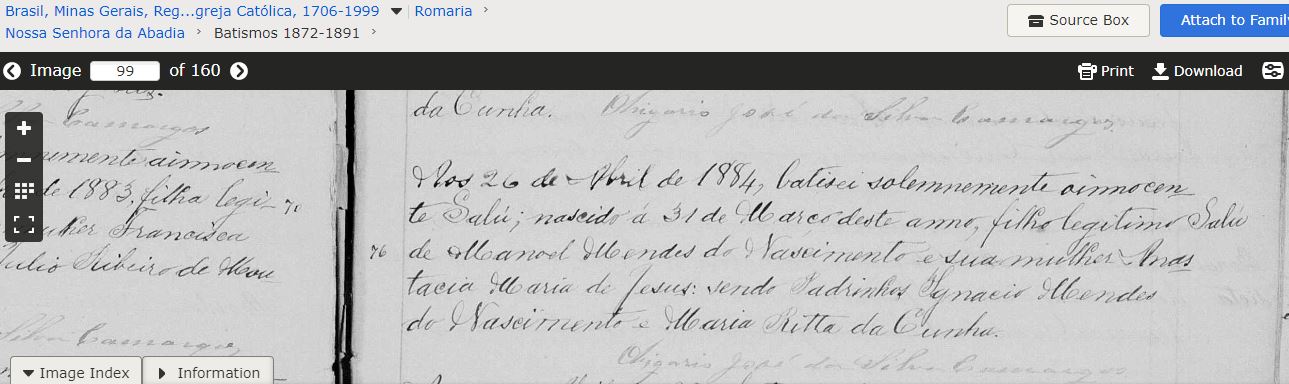 Brasil, Minas Gerais, Reg...greja Católica, 1706-1999 Romaria
Nossa Senhora da Abadia Batismos 1872-1891
Source Box
Attach to Family
Image 99 of 160
Print Download
da Cunha.
Ohigario José da Silva Camargos.
Aos 26 de Abril de 1884, batisei solemnemente oinnocen
te Salú; nascido á 31 de Março deste anno, filho legitimo Salú
76 de Manoel Mendes do Nascimento e sua mulher Anas
tacia Maria de Jesus: sendo Padrinhos Ignacio Mendes
do Nascimento e Maria Ritta da Cunha.
Ohigario José da Silva Camargos
Camargos
ainnocen
de 1883, filha legi
Francisca
Julio Ribeiro de Mou
Silva Camargos,
Image Index Information